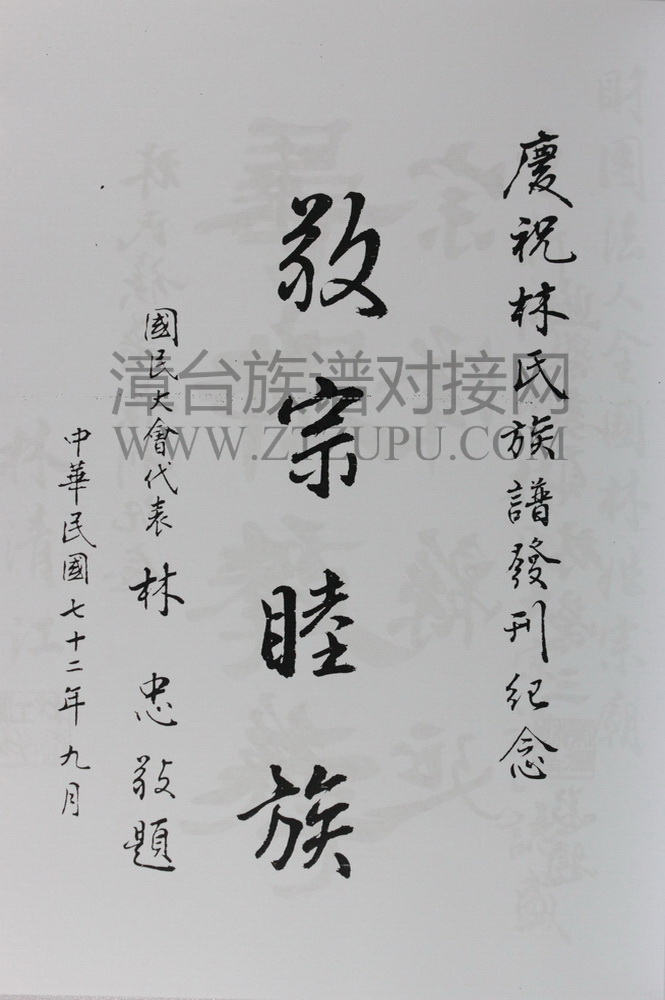 慶祝林氏族譜發刊紀念
敬宗睦族
國民大會代表 林忠敬題
中華民國七十二年九月
漳台族谱对接网
WWW.ZTZUPU.COM